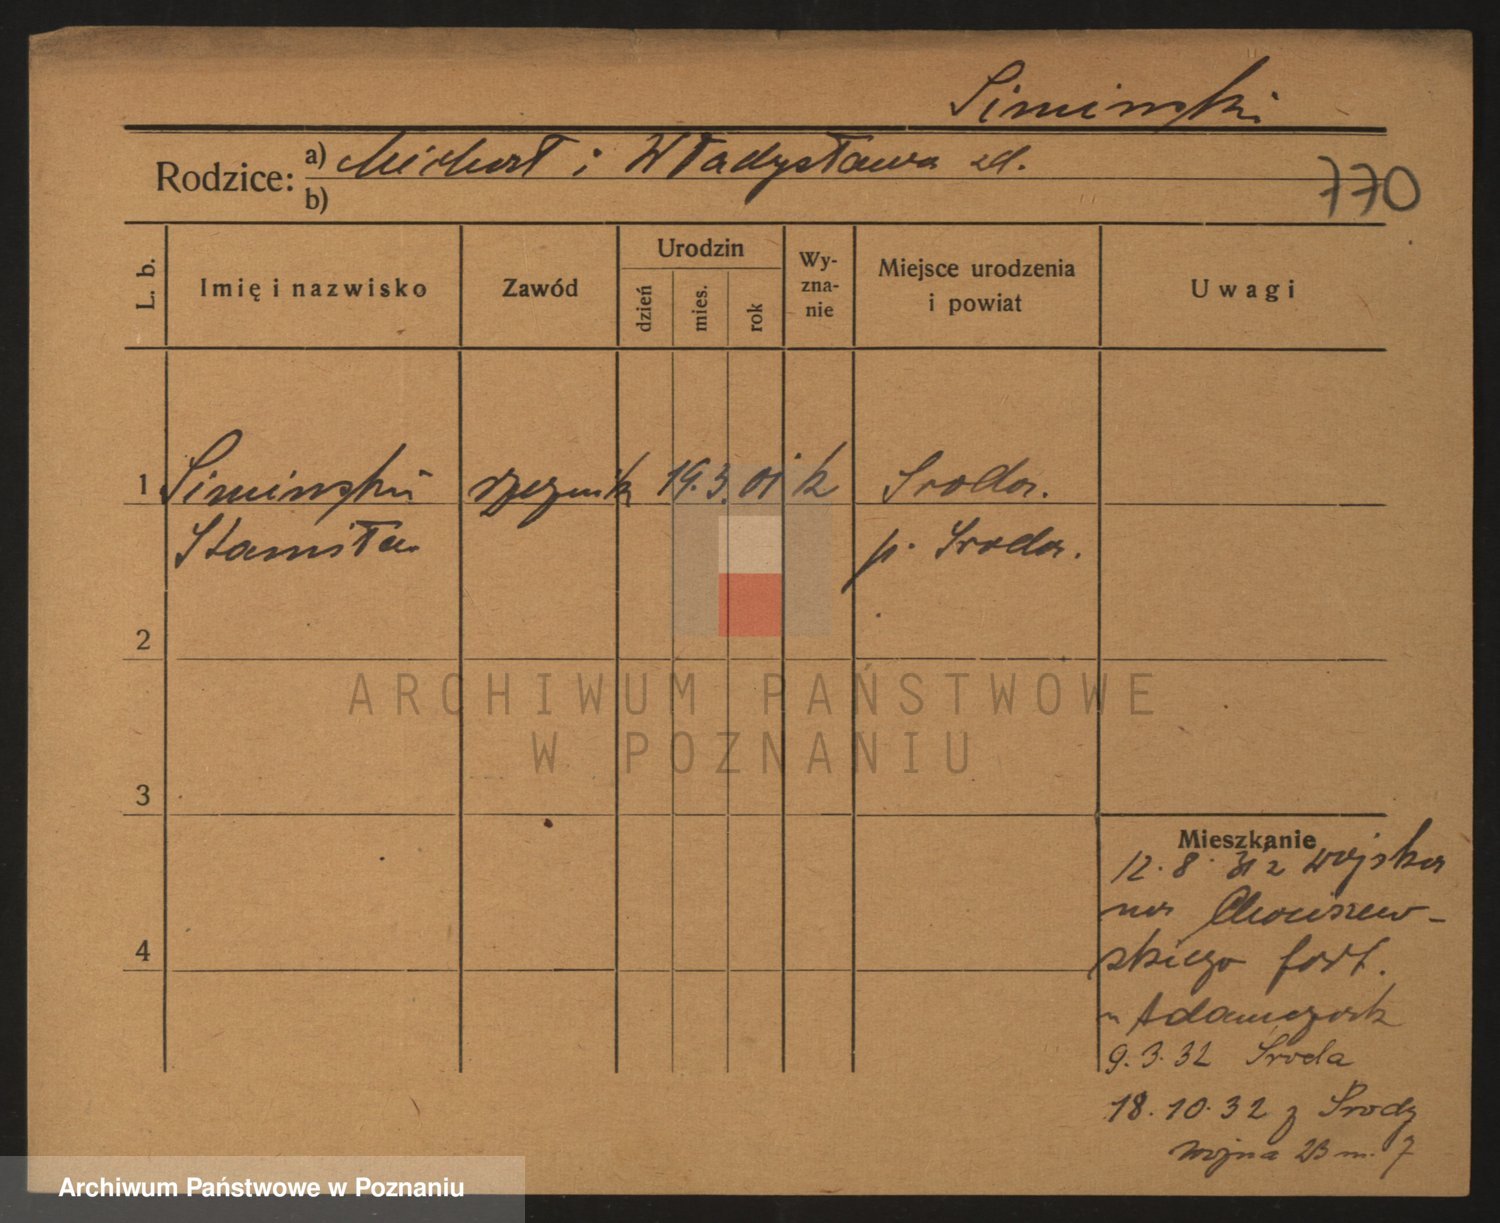 Siminski
Rodzice: a) Michał i Władysława zd.
b)
770
L. b.
Imię i nazwisko
Zawód
Urodzin
dzień
mies.
rok
Wy-
zna-
nie
Miejsce urodzenia
i powiat
Uwagi
1 Siminski rzeznik 19. 3. 01 k Sroda.
Stanisław p. Sroda.
2
3
4
Mieszkanie
12. 8. 31 z wojska
na
skiego fort.
Adamczak
9. 3. 32 Sroda
18. 10. 32 z Srody
m. 7
ARCHIWUM PAŃSTWOWE
W POZNANIU
Archiwum Państwowe w Poznaniu